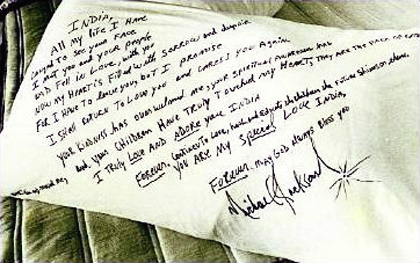 INDIA,
All my life I Have
Longed to See your FACE
I met you and your people
and Fell in Love with you
Now my Heart is Filled with Sorrow and despair
For I Have to Leave you, but I promise
I shall Return To Love you and Caress you Again
Your Kindness Has overwhelmed me, your Spiritual Awareness Has
and your Children Have Truly Touched my Heart, They are the Face of
I Truly Love and ADORE you INDIA
FOREVER, Continue To Love, heal and Educate the Children, the Future Shines on them.
You ARE my Special Love INDIA,
FOREVER, may GOD Always Bless you
Michael Jackson